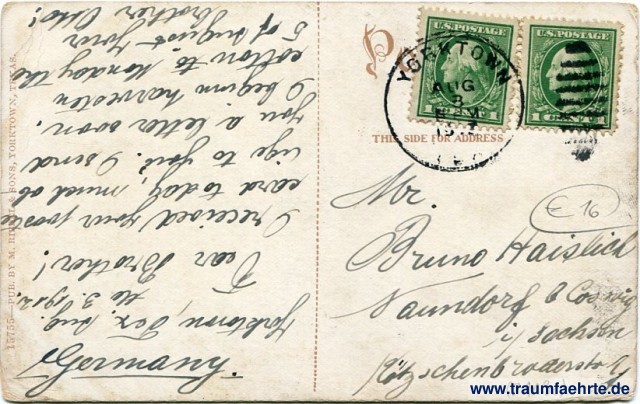 Yorktown, Tex. Aug.
the 3. 1912.
Dear Brother!
I received your postel
card to day, much ob
lige to you. I send
you a letter soon.
I begin harvesten
cotton to Monday the
5 of August your
Brother Otto!
Germany
13755—PUB. BY M. & SONS, YORKTOWN, TEXAS.
U.S. POSTAGE
1 CENT 1
U.S. POSTAGE
1 CENT 1
YORKTOWN
AUG
3
TEX
THIS SIDE FOR ADDRESS
Mr.
Bruno Haislich
Naundorf b Coswig
i/ Sachsen
Kötzschenbroderstr.
€ 16
www.traumfaehrte.de